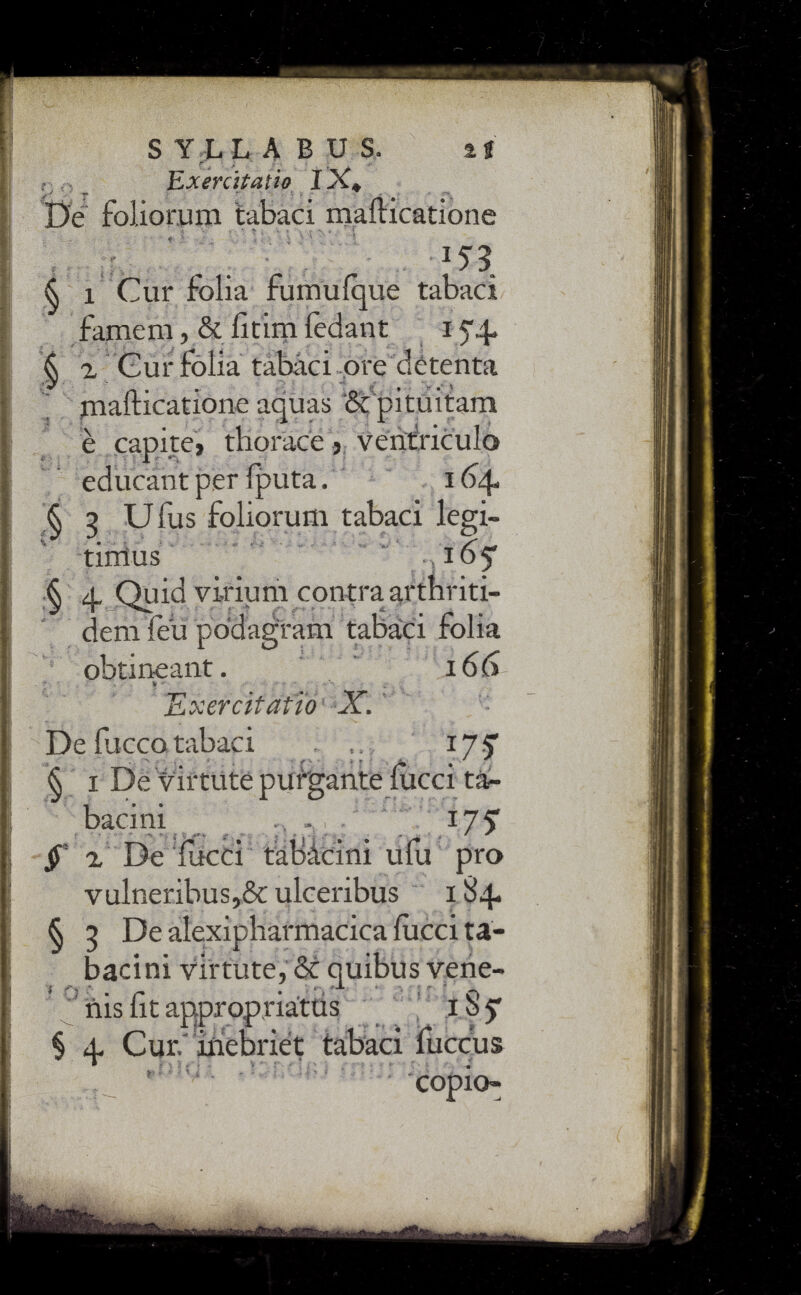 SYLLABUS. 21
Exercitatio IX.
De foliorum tabaci maſticatione
153
§ 1 Cur folia fumuſque tabaci
famem, & ſitim ſedant 154
§ 2 Cur folia tabaci ore detenta
maſticatione aquas & pituitam
è capite, thorace, ventriculo
educant per ſputa. 164
§ 3 Uſus foliorum tabaci legi-
timus 165
§ 4 Quid virium contra arthriti-
dem ſeu podagram tabaci folia
obtineant. 166
Exercitatio X.
De ſucco tabaci 175
§ 1 De virtute purgante ſucci ta-
bacini 175
§ 2 De ſucci tabacini uſu pro
vulneribus, & ulceribus 184
§ 3 De alexipharmacica ſucci ta-
bacini virtute, & quibus vene-
nis ſit appropriatus 185
§ 4 Cur inebriet tabaci ſuccus
copio-